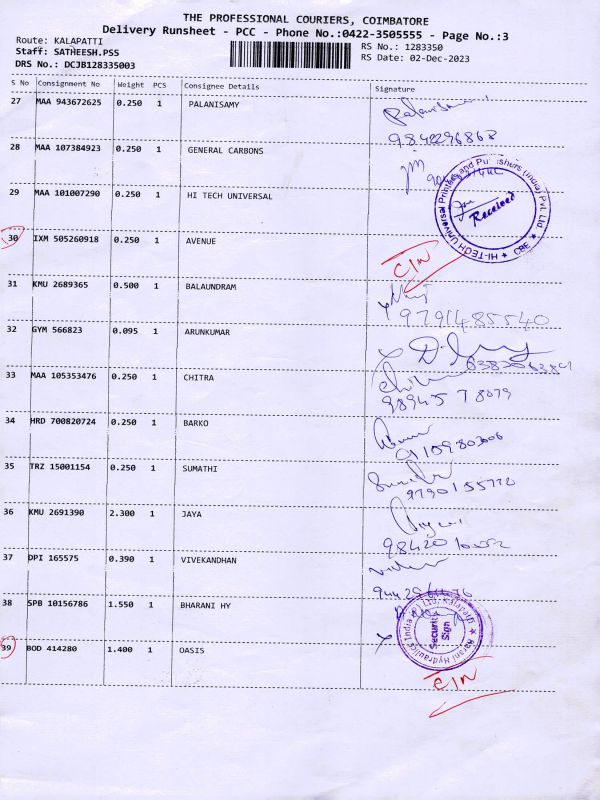 THE PROFESSIONAL COURIERS, COIMBATORE
Delivery Runsheet - PCC - Phone No.:0422-3505555 - Page No.:3
Route: KALAPATTI
Staff: SATHEESH.PSS
DRS No.: DCJB128335003
RS No.: 1283350
RS Date: 02-Dec-2023
S No Consignment No Weight PCS Consignee Details Signature
27 MAA 943672625 0.250 1 PALANISAMY
28 MAA 107384923 0.250 1 GENERAL CARBONS
29 MAA 101007290 0.250 1 HI TECH UNIVERSAL
HI-TECH Universal Printing and Publishers (India) Pvt. Ltd. CBE
Received
30 IXM 505260918 0.250 1 AVENUE
C/N
31 KMU 2689365 0.500 1 BALAUNDRAM
9791485540
32 GYM 566823 0.095 1 ARUNKUMAR
33 MAA 105353476 0.250 1 CHITRA
98945 78079
34 HRD 700820724 0.250 1 BARKO
35 TRZ 15001154 0.250 1 SUMATHI
9790155772
36 KMU 2691390 2.300 1 JAYA
37 DPI 165575 0.390 1 VIVEKANDHAN
38 SPB 10156786 1.550 1 BHARANI HY
Barani Hydraulics India (P) Ltd, Kalapatti
Security
Sign
39 BOD 414280 1.400 1 OASIS
C/N